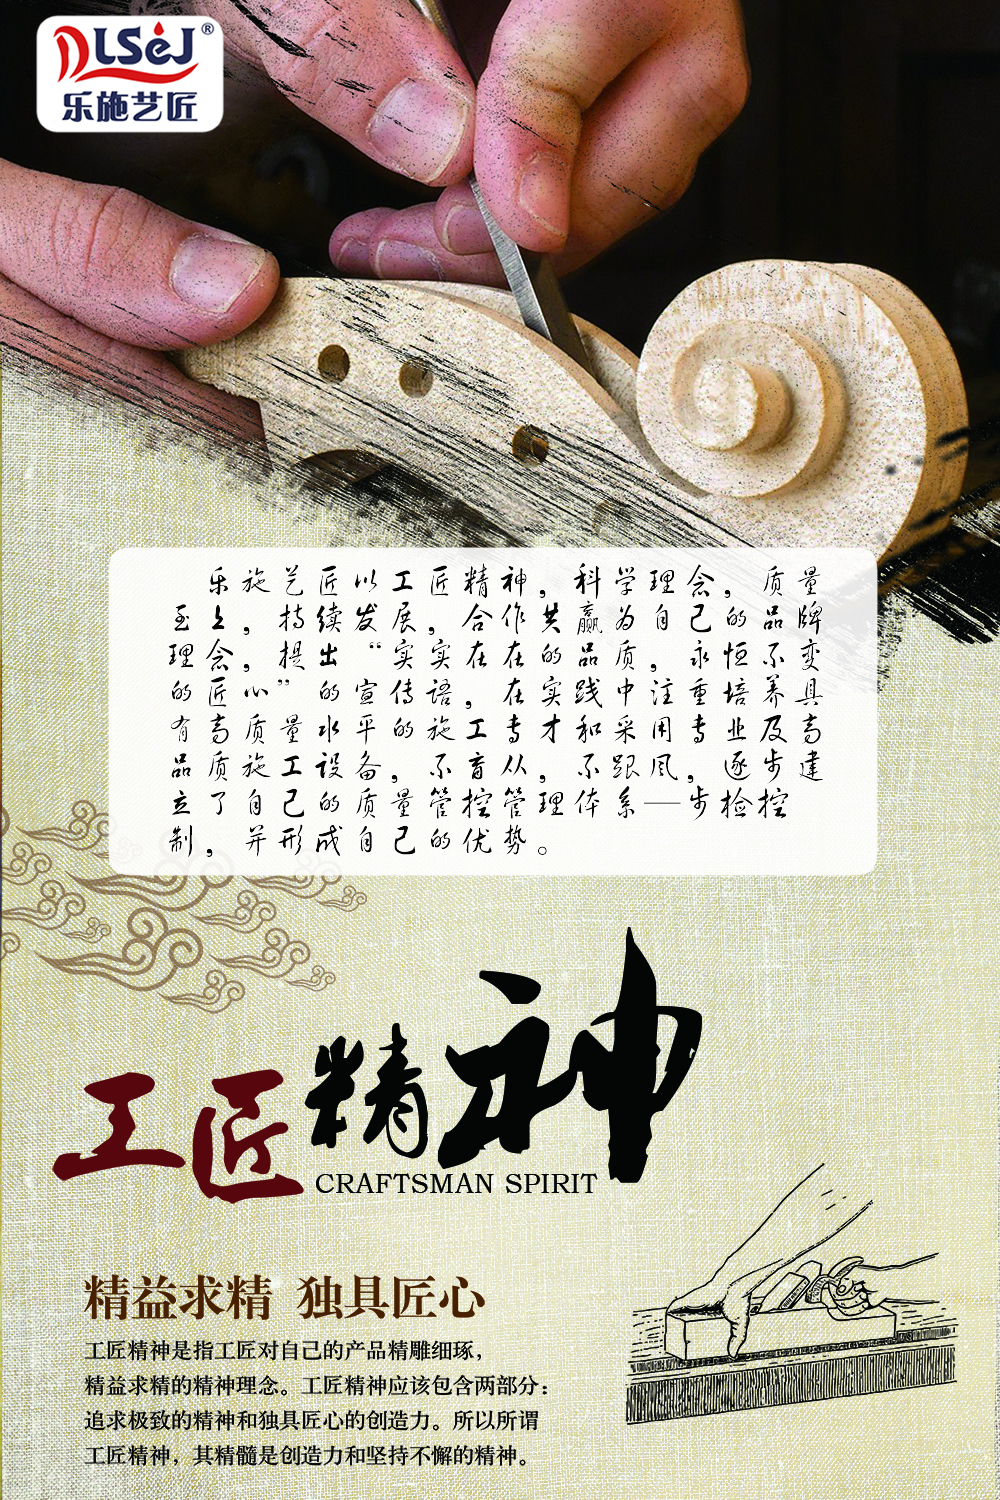 LSEJ®
乐施艺匠
乐施艺匠以工匠精神，科学理念，质量
至上，持续发展，合作共赢为自己的品牌
理念，提出“实实在在的品质，永恒不变
的匠心”的宣传语，在实践中注重培养具
有高质量水平的施工专才和采用专业及高
品质施工设备，不盲从，不跟风，逐步建
立了自己的质量管控管理体系—步检控
制，并形成自己的优势。
工匠精神
CRAFTSMAN SPIRIT
精益求精 独具匠心
工匠精神是指工匠对自己的产品精雕细琢，
精益求精的精神理念。工匠精神应该包含两部分：
追求极致的精神和独具匠心的创造力。所以所谓
工匠精神，其精髓是创造力和坚持不懈的精神。